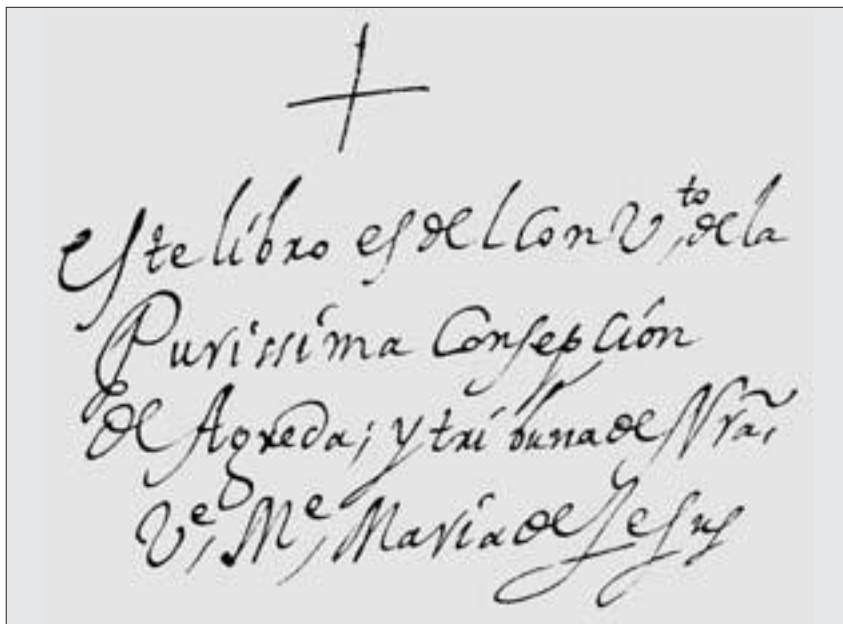 Este libro es del Conv.to de la
Purissima Consepción
de Agreda; y tribuna de Nrã,
Ve, Me, Maria de Jesus